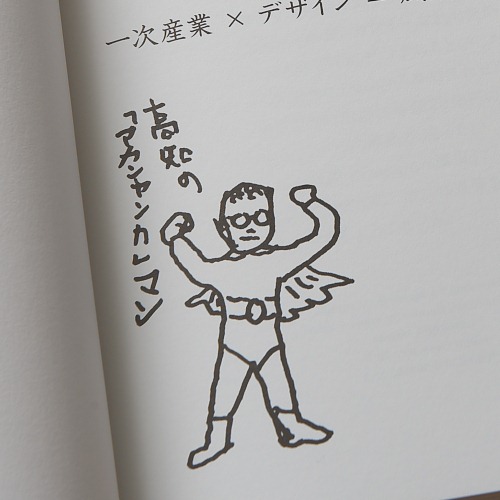 一次産業 × デザイン =
高知の
「アカンヤンカ」マン